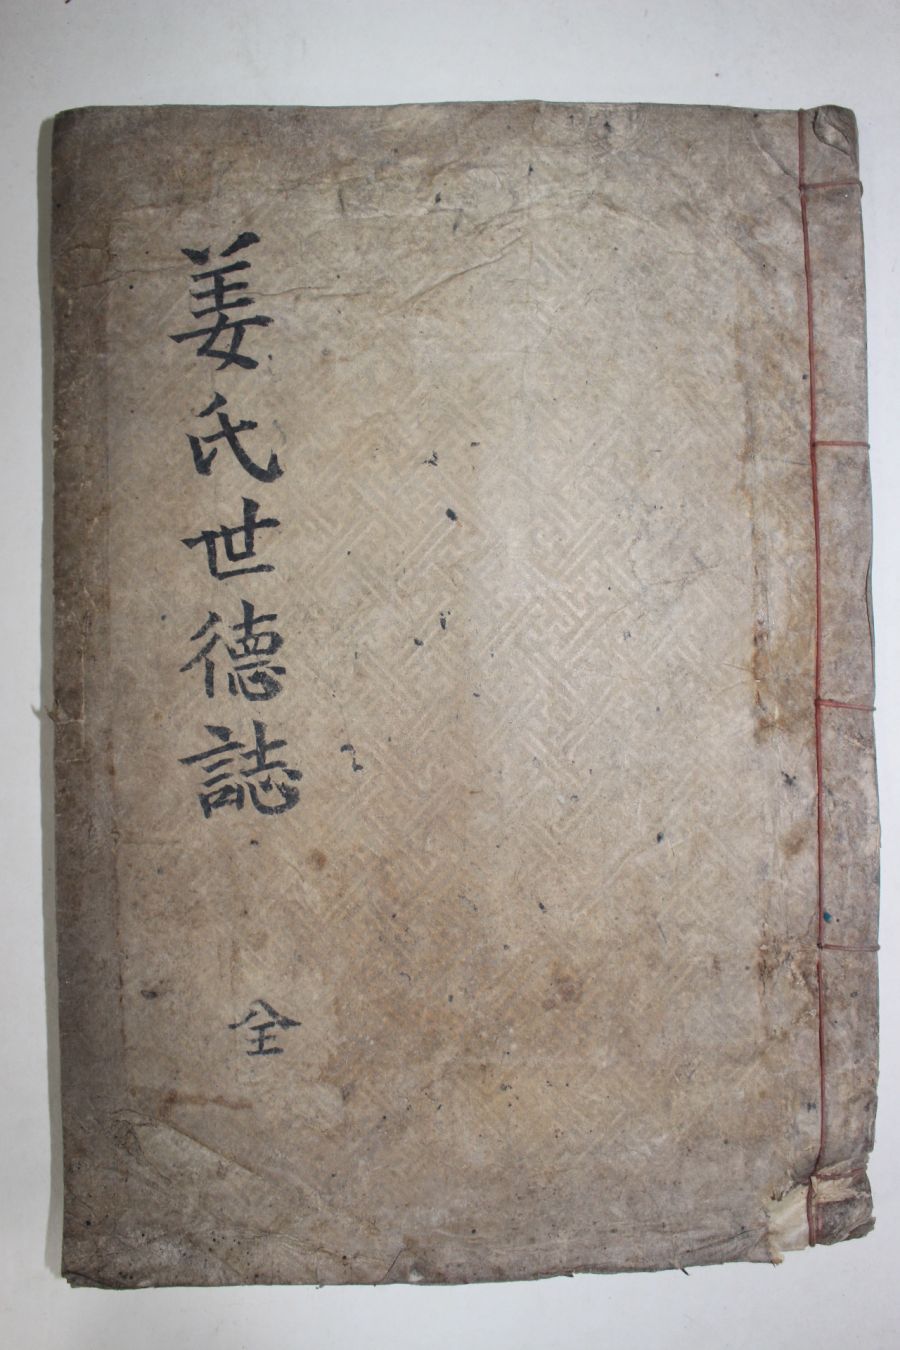 姜氏世德誌
全